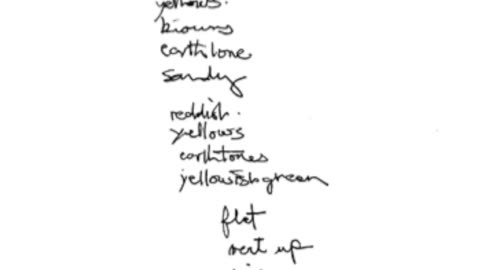 yellows.
browns
earthtone
sandy
reddish.
yellows
earthtones
yellowishgreen
flat
up